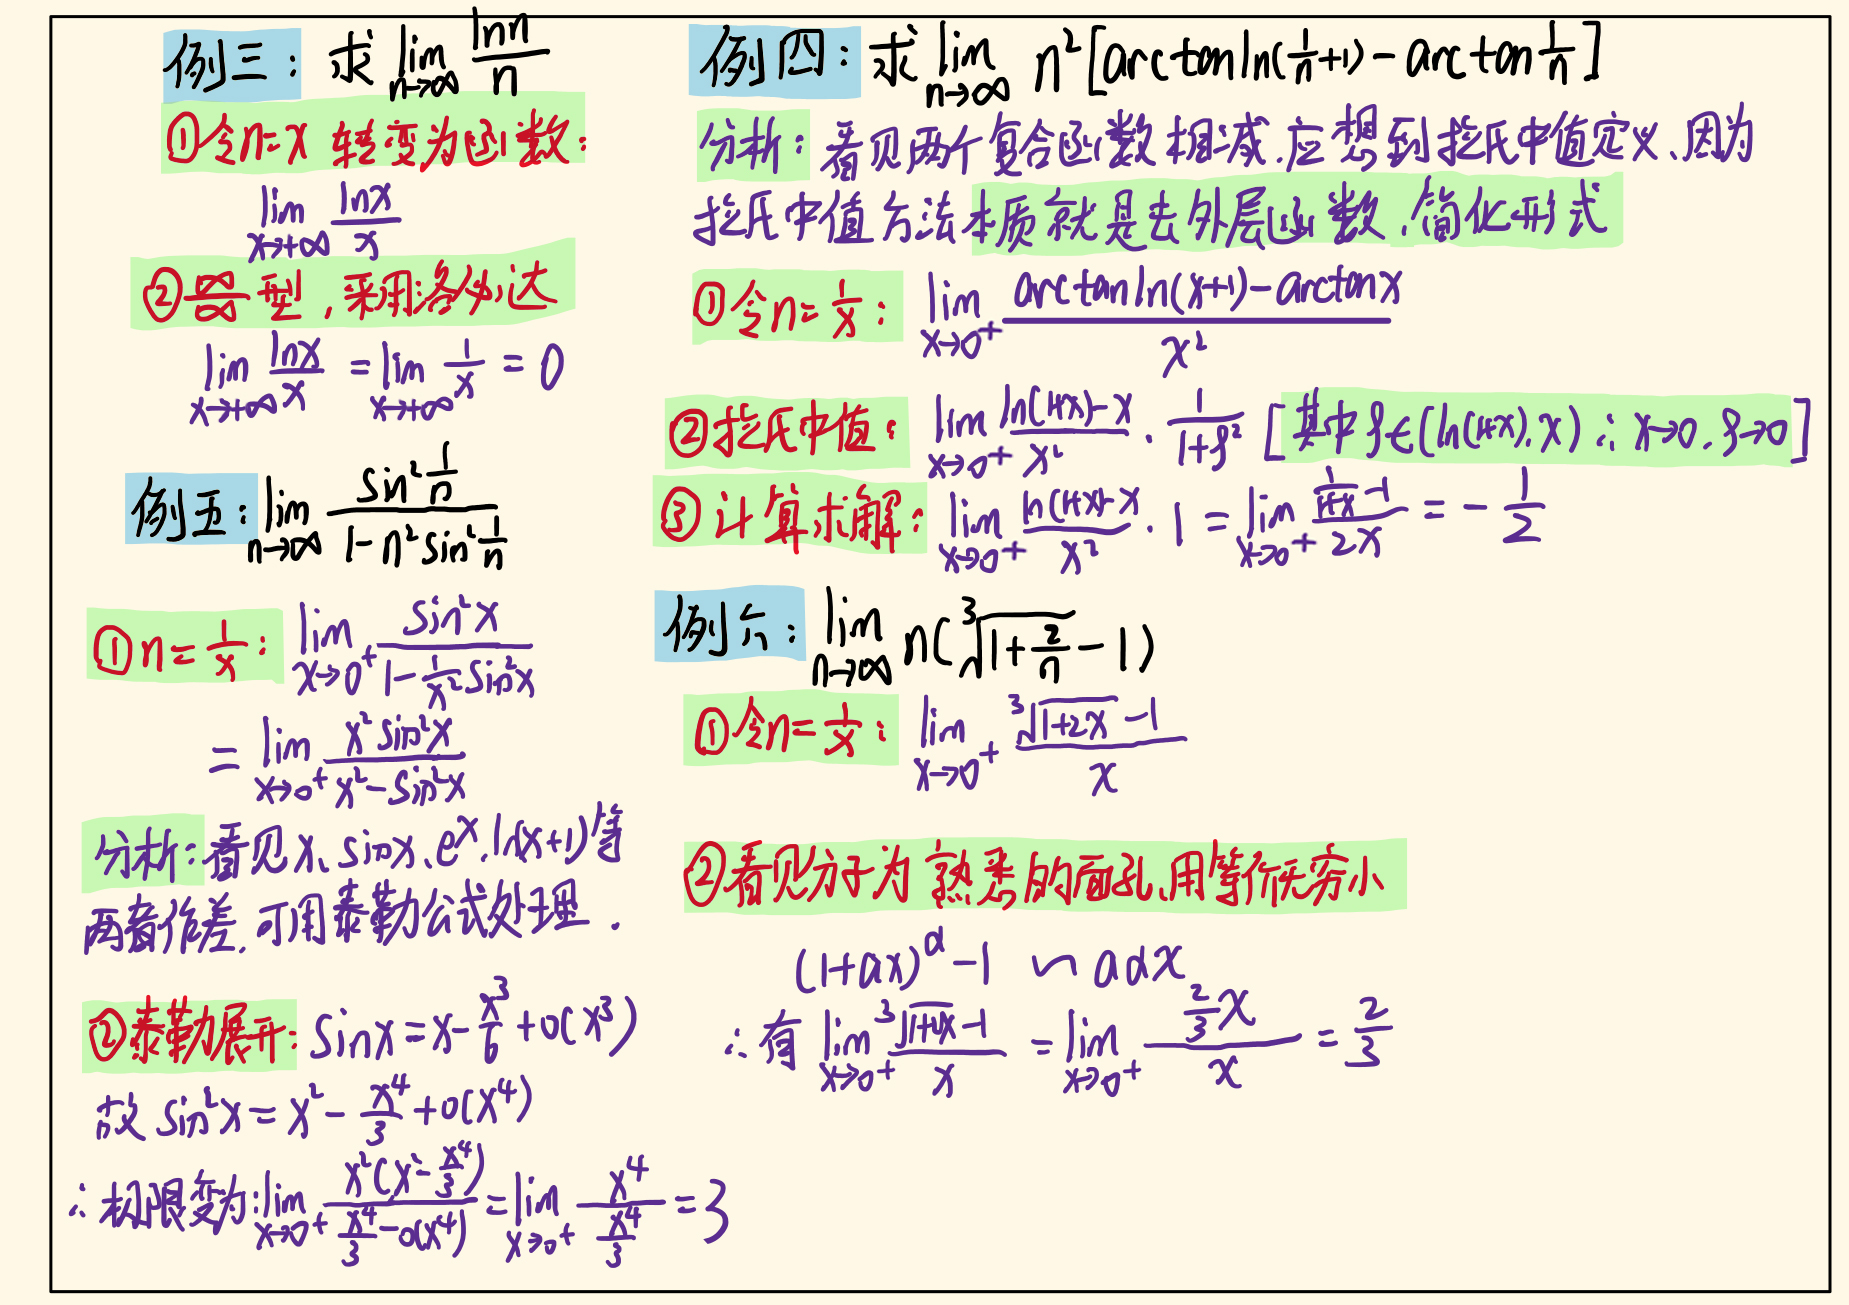 例三: 求 lim n→∞ lnn/n
①令n=x 转变为函数:
lim x→+∞ lnx/x
②∞/∞型, 采用洛必达
lim x→+∞ lnx/x = lim x→+∞ 1/x = 0
例五: lim n→∞ sin²(1/n)/(1-n²sin²(1/n))
①n=1/x: lim x→0⁺ sin²x/(1-(1/x²)sin²x)
= lim x→0⁺ x²sin²x/(x²-sin²x)
分析: 看见x、sinx、eˣ、ln(x+1)等
两者作差, 可用泰勒公式处理.
②泰勒展开: sinx=x-x³/6+o(x³)
故 sin²x=x²-x⁴/3+o(x⁴)
∴极限变为: lim x→0⁺ x²(x²-x⁴/3)/(x⁴/3-o(x⁴)) = lim x→0⁺ x⁴/(x⁴/3) = 3
例四: 求 lim n→∞ n²[arctanln(1/n+1)-arctan1/n]
分析: 看见两个复合函数相减, 应想到拉氏中值定义、因为
拉氏中值方法本质就是去外层函数, 简化形式
①令n=1/x: lim x→0⁺ (arctanln(x+1)-arctanx)/x²
②拉氏中值: lim x→0⁺ (ln(1+x)-x)/x² · 1/(1+ξ²) [其中ξ∈(ln(1+x),x) ∴ x→0, ξ→0]
③计算求解: lim x→0⁺ (ln(1+x)-x)/x² · 1 = lim x→0⁺ (1/(1+x)-1)/2x = -1/2
例六: lim n→∞ n(³√(1+2/n)-1)
①令n=1/x: lim x→0⁺ (³√(1+2x)-1)/x
②看见分子为熟悉的面孔、用等价无穷小
(1+ax)^α-1 ∽ aαx
∴有 lim x→0⁺ (³√(1+2x)-1)/x = lim x→0⁺ (2/3)x/x = 2/3